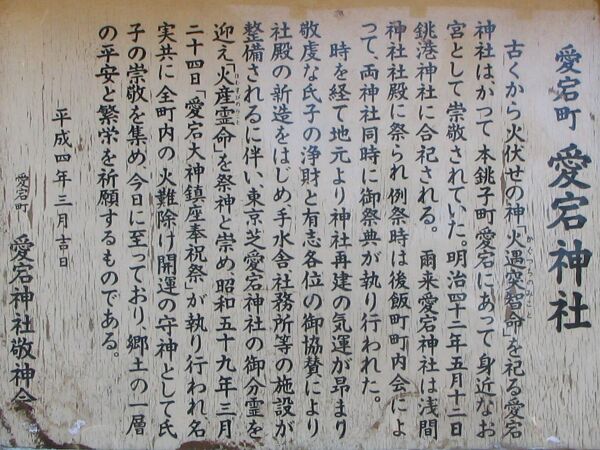 愛宕町 愛宕神社
古くから火伏せの神「火遇突智命」を祀る愛宕
かぐつちのみこと
神社は、かつて本銚子町愛宕にあって身近なお
宮として崇敬されていた。明治四十二年五月十二日
銚港神社に合祀される。爾来愛宕神社は浅間
神社社殿に祭られ例祭時は後飯町町内会によ
って、両神社同時に御祭典が執り行われた。
時を経て地元より神社再建の気運が昂まり
敬虔な氏子の浄財と有志各位の御協賛により
社殿の新造をはじめ、手水舎社務所等の施設が
整備されるに伴い、東京芝愛宕神社の御分霊を
迎え「火産霊命」を祭神と崇め、昭和五十九年三月
二十四日「愛宕大神鎮座奉祝祭」が執り行われ名
実共に全町内の火難除け開運の守神として氏
子の崇敬を集め、今日に至っており、郷土の一層
の平安と繁栄を祈願するものである。
平成四年三月吉日
愛宕町 愛宕神社敬神会